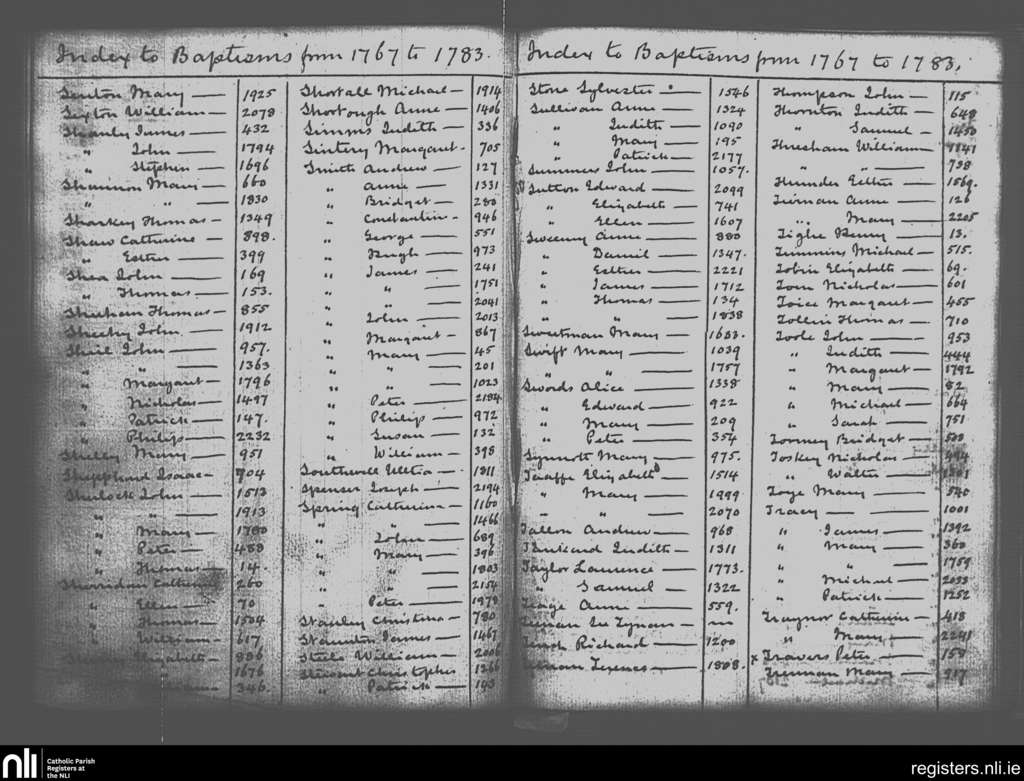 Index to Baptisms from 1767 to 1783.
Sexton William — 2078
Shanly James — 432
" John — 1794
" Stephen — 1696
Shannon Mary — 660
" " — 1830
Sharkey Thomas — 1349
Shaw Catherine — 898.
" Esther — 399
Shea John — 169
" Thomas — 153.
Sheehan Thomas — 855
Sheehy John — 1912
Sheil John — 957.
" " — 1363
" Margaret — 1796
" Nicholas — 1497
" Patrick — 147.
" Philip — 2232
Shelly Mary — 951
Shepphard Isaac — 704
Sherlock John — 1513
" " — 1913
" Mary — 1780
" Peter — 488
" Thomas — 14.
Sherridan Catherine 260
" Ellen — 70
" Thomas — 1504
" William — 617
Elizabeth — 886
1676
346.
Shortall Michael — 1914
Shortough Anne — 1406
Simms Judith — 336
Margaret — 705
Smith Andrew — 127
" Anne — 1331
" Bridget — 280
" Constantine — 946
" George — 551
" Hugh — 973
" James — 241
" " — 1751
" " — 2041
" John — 2013
" Margaret — 867
" Mary — 45
" " — 201
" " — 1023
" Peter — 2184
" Philip — 972
" Susan — 132
" William — 398
Southwell — 1811
Spenser Joseph — 2194
Spring Catherine — 1160
" " — 1466
" John — 689
" Mary — 396
" " — 1803
" " — 2154
" Peter — 1978
Stanley Christina — 780
Staunton James — 1467
Steele William — 2006
Stewart Christopher 1266
" Patrick — 143
Index to Baptisms from 1767 to 1783.
Stone Sylvester — 1546
Sullivan Anne — 1324
" Judith — 1090
" Mary — 195
" Patrick — 2177
Summers John — 1057.
Sutton Edward — 2099
" Elizabeth — 741
" Ellen — 1607
Sweeny Anne — 880
" Daniel — 1347.
" Esther — 2221
" James — 1712
" Thomas — 134
" " — 1838
Sweetman Mary — 1683.
Swift Mary — 1039
" " — 1757
Swords Alice — 1338
" Edward — 922
" Mary — 209
" Peter — 354
Synnott Mary — 975.
Taaffe Elizabeth — 1514
" Mary — 1999
" " — 2070
Tallon Andrew — 968
Tankard Judith — 1311
Taylor Laurence — 1773.
" Samuel — 1322
Teage Anne — 559.
Richard — 1200
Terence — 1808.
Thompson John — 115
Thornton Judith — 648
" Samuel — 1450
William — 1841
" " — 738
Thunder Esther — 1569.
Tiernan Anne — 126
" Mary — 2205
Tighe Henry — 13.
Timmins Michael — 515.
Tobin Elizabeth — 69.
Toin Nicholas — 601
Toice Margaret — 455
Tollin Thomas — 710
Toole John — 953
" Judith — 444
" Margaret — 1792
" Mary — 82
" Michael — 664
" Sarah — 751
Tormey Bridget —
Toskey Nicholas — 494
" Walter —
Toye Mary — 540
Tracy — 1001
" James — 1392
" Mary — 360
" " — 1759
" Michael — 2033
" Patrick — 1252
Traynor Catherine — 418
" Mary — 2241
x Travers Peter — 158
Mary — 917
nli
Catholic Parish
Registers at
the NLI
registers.nli.ie